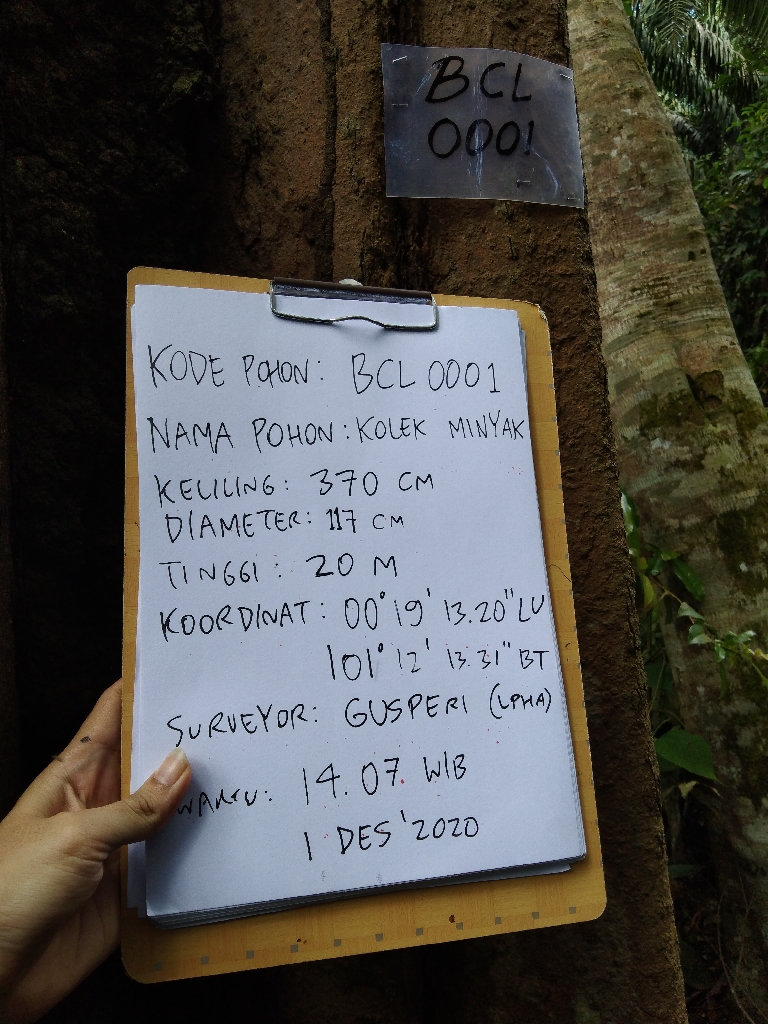 BCL
0001
KODE POHON: BCL 0001
NAMA POHON: KOLEK MINYAK
KELILING: 370 CM
DIAMETER: 117 CM
TINGGI: 20 M
KOORDINAT: 00° 19' 13.20" LU
101° 12' 13.31" BT
SURVEYOR: GUSPERI (LPHA)
WAKTU: 14.07. WIB
1 DES '2020